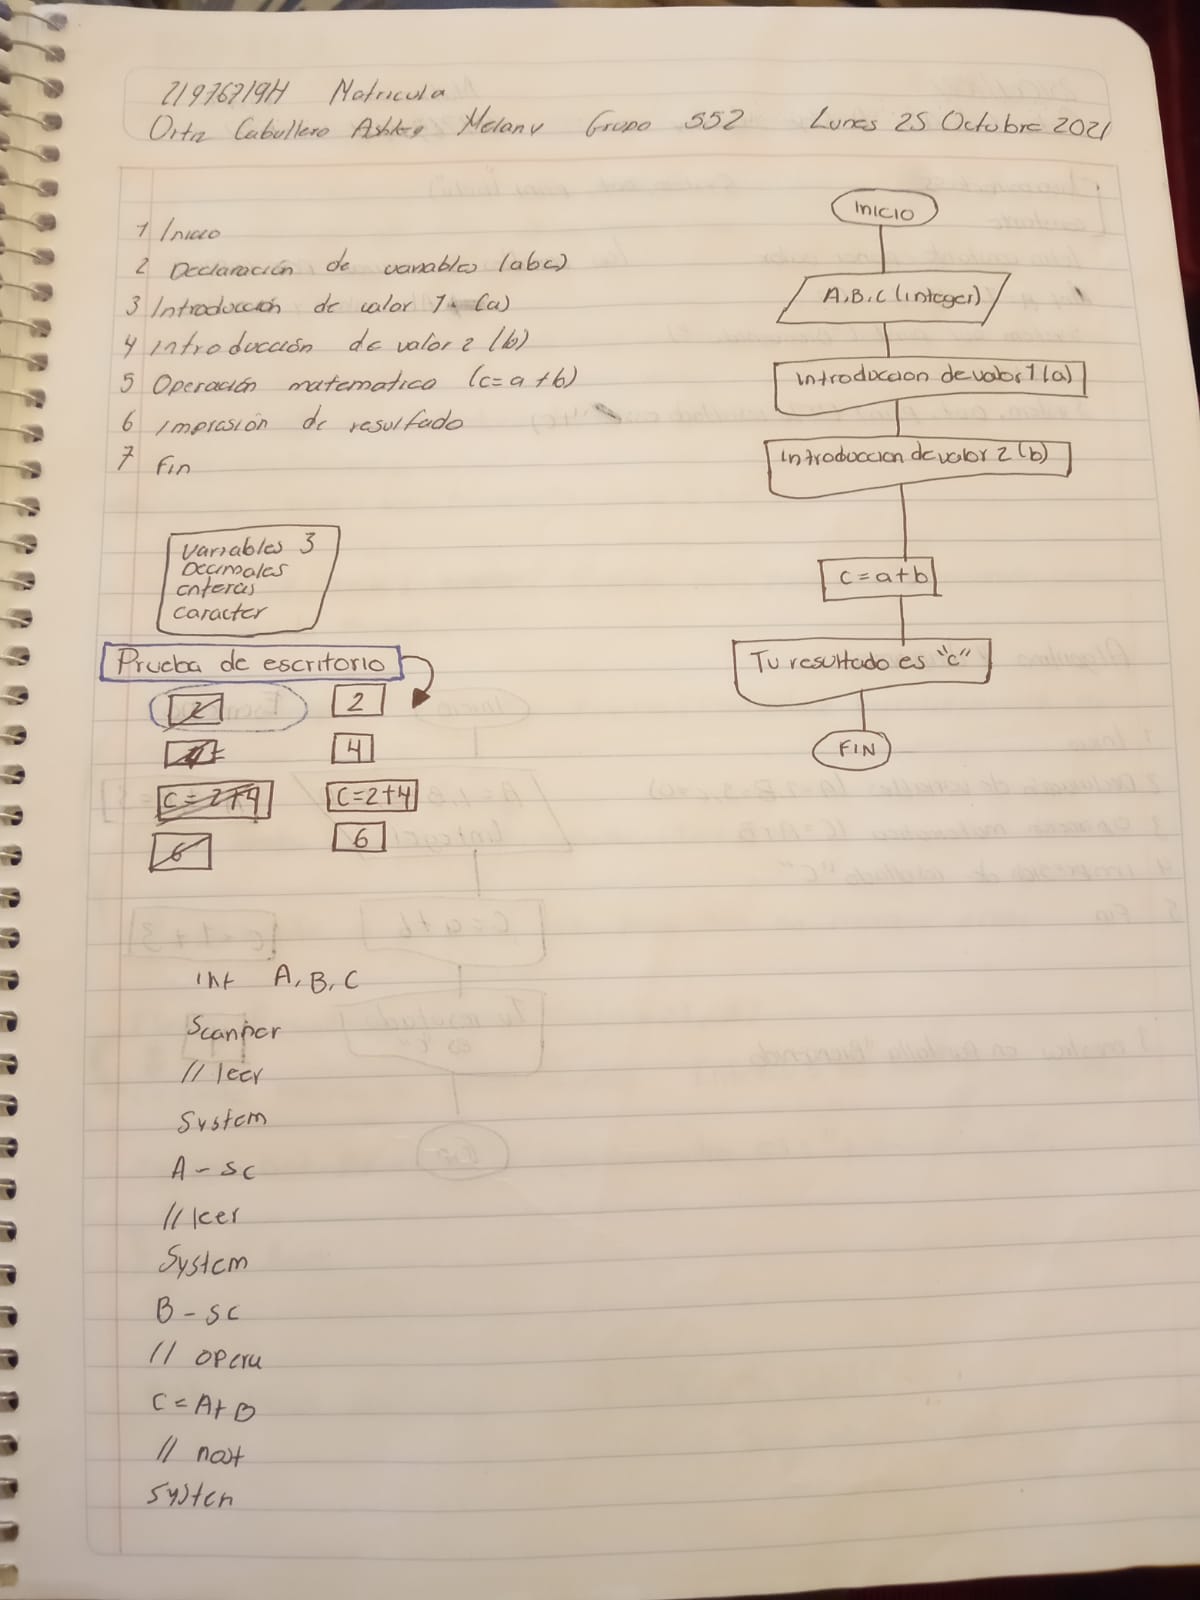 21976719H Matricula
Ortiz Caballero Ashley Melany Grupo 552 Lunes 25 Octubre 2021
1 Inicio
2 Declaración de variables (abc)
3 Introducción de valor 1 (a)
4 Introducción de valor 2 (b)
5 Operación matematico (c=a+b)
6 Impresión de resultado
7 Fin
Variables 3
Decimales
enteras
caracter
Prueba de escritorio
2
4
c=2+4
6
2
4
C=2+4
6
Int A, B, C
Scanner
// leer
System
A - sc
// leer
System
B - sc
// opera
C = A+B
// most
System
INICIO
A,B,C (integer)
Introduccion de valor 1 (a)
Introduccion de valor 2 (b)
c=a+b
Tu resultado es "c"
FIN